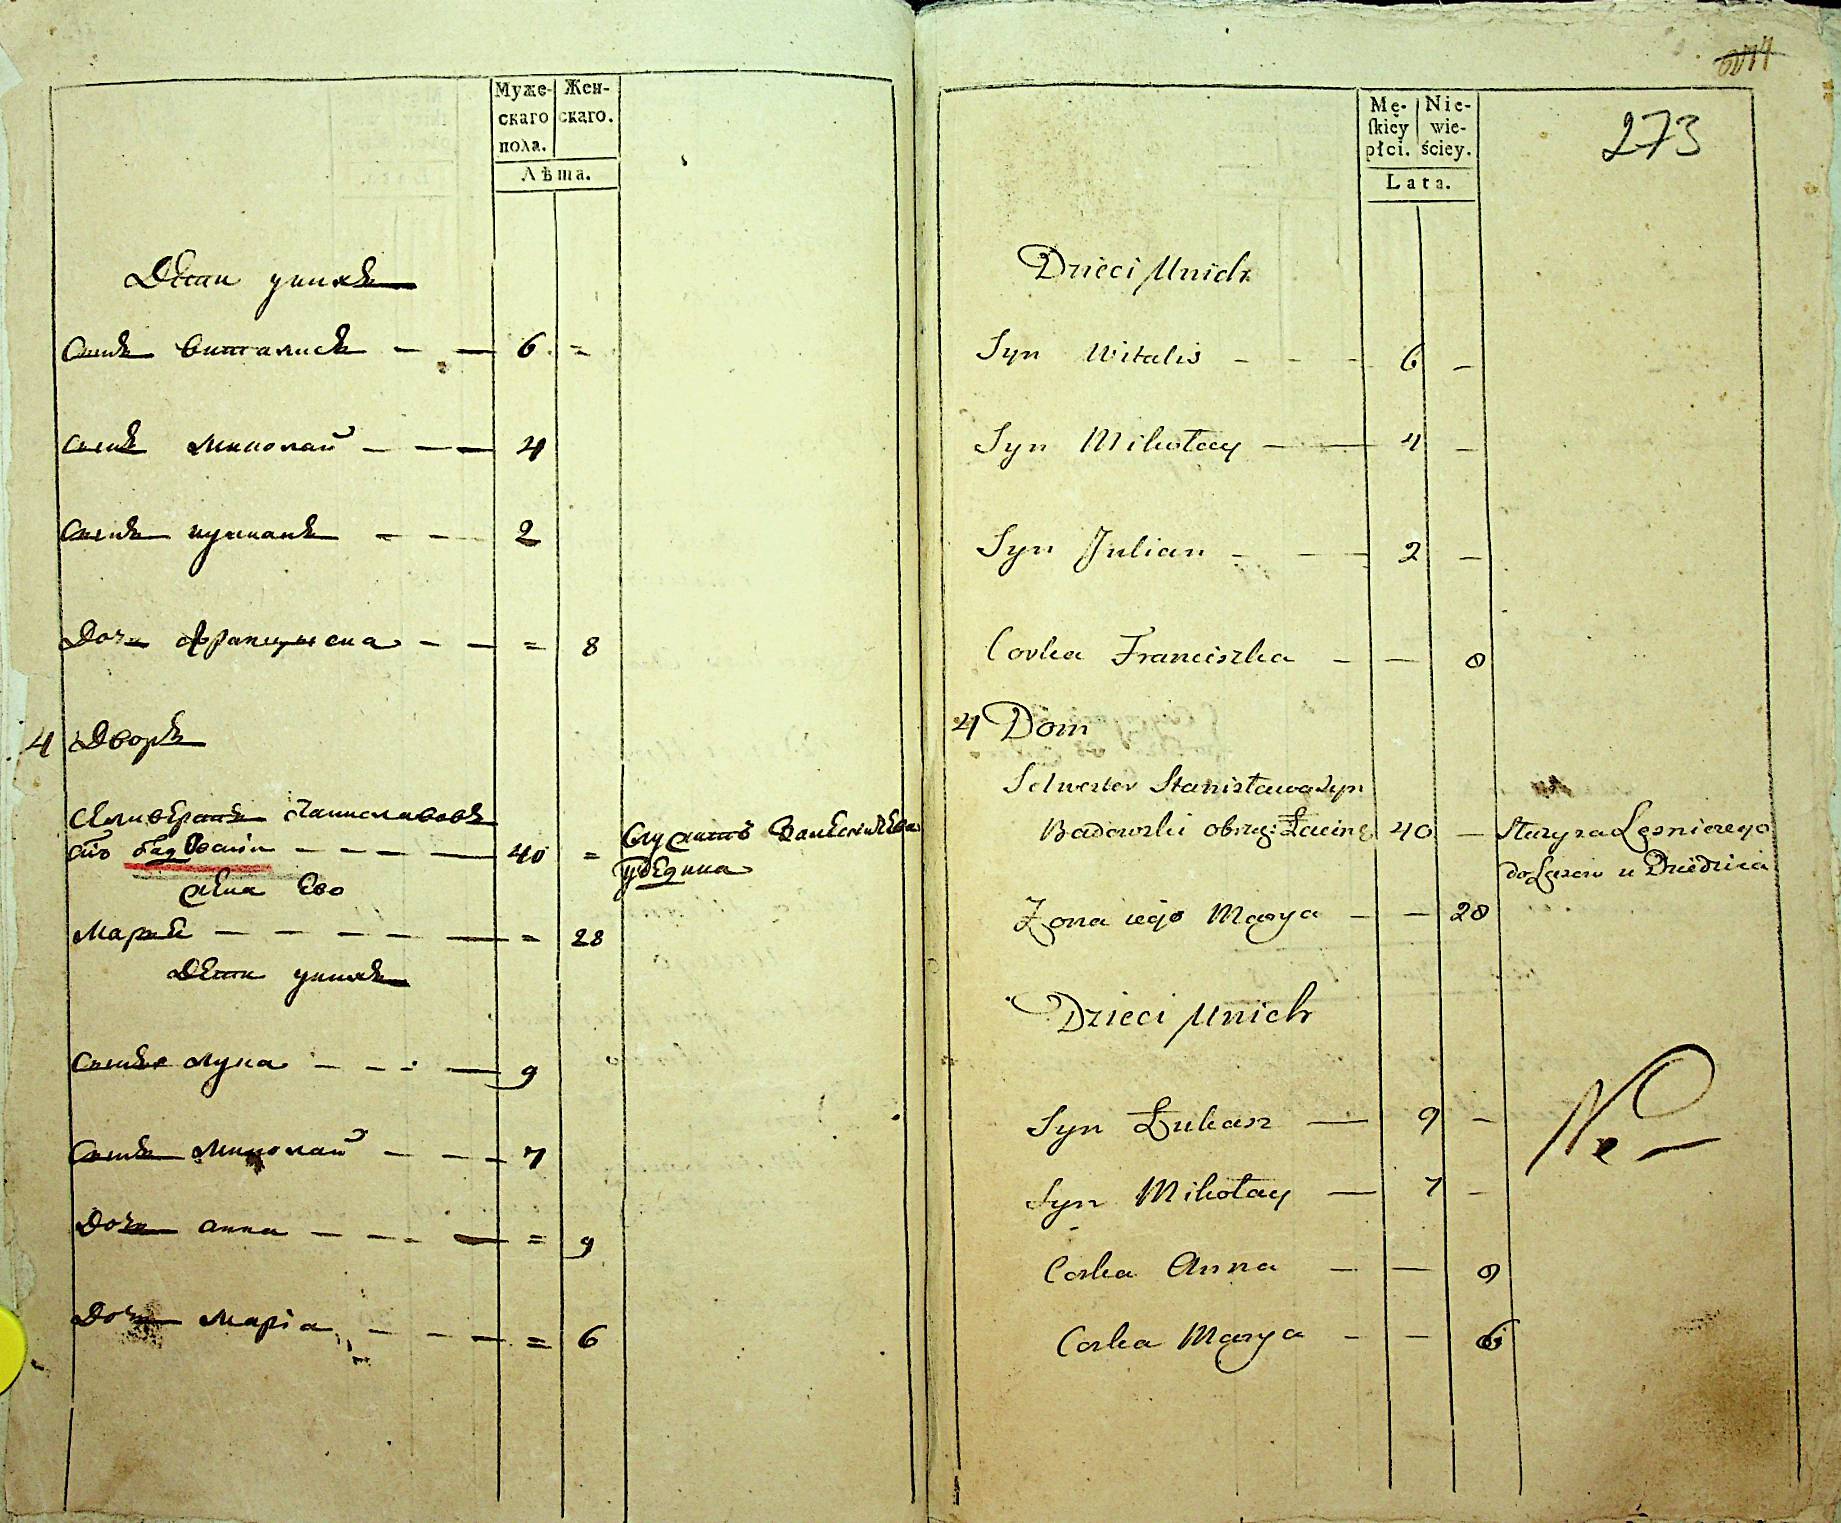 Муже-
скаго
пола.
Жен-
скаго.
Лѣта.
Дѣти унихъ
Сынъ Виталисъ — — 6 =
Сынъ Миколай — — — 4
Сынъ Юлианъ — — 2
Дочь Францишка — — = 8
4 Дворъ
Селивестръ Станиславовъ
сынъ Бадовскiй — — — — 40 =
жена Ево
Марья — — — — — = 28
Дѣти унихъ
Сынъ Лука — — — — 9
Сынъ Миколай — — — 7
Дочь Анна — — — — = 9
Дочь Марiа — — — = 6
274
273
Mę-
ſkiey
płci.
Nie-
wie-
ściey.
Lata.
Dzieci Unich
Syn Witalis — — — 6 —
Syn Mikołay — — 4 —
Syn Julian — — 2 —
Corka Franciszka — — 8
4 Dom
Selwester Stanisława Syn
Badowski obrzą: Łacins: 40 — Służy za Leśniczego
do Lasow u Dziedzica
Zona iego Marya — — 28
Dzieci Unich
Syn Łukasz — 9 —
Syn Mikołay — 7 —
Corka Anna — — 9
Corka Marya — — 6